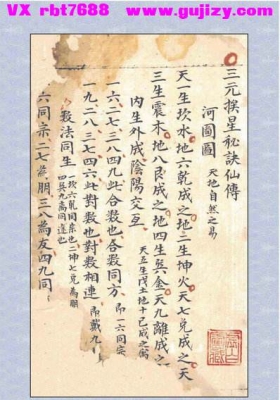 VX rbt7688 www.gujizy.com
三元揆星秘訣仙傳
河圖圖 天地自然之易
天一生坎水地六乾成之地二生坤火天七兌成之天
三生震木地八艮成之地四生巽金天九離成之
內生外成陰陽交互 天五生戊土地十己成之
一六二七三八四九此合数也合数同方 即一六同宗
一九二八三七四六此對数也對数相連 即戴九
数法同生 一坎六乾同宗也二坤七兌為朋
四巽九离同道也
六同宗二七為朋三八為友四九同